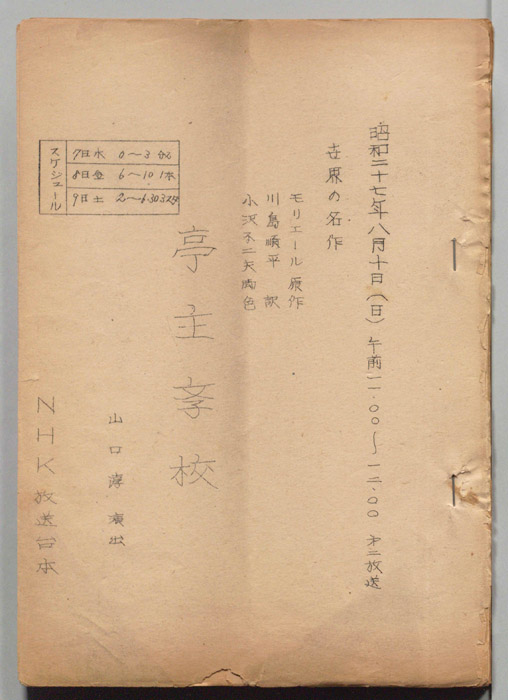 昭和二十七年八月十日(日)午前一一・〇〇〜一二・〇〇 才二放送
世界の名作
モリエール 原作
川島順平 訳
小沢不二夫脚色
亭主学校
山口淳 演出
NHK放送台本
スケジュール
7日水 0〜3
8日 6〜10 1本
9日土 2〜6.30 スタ